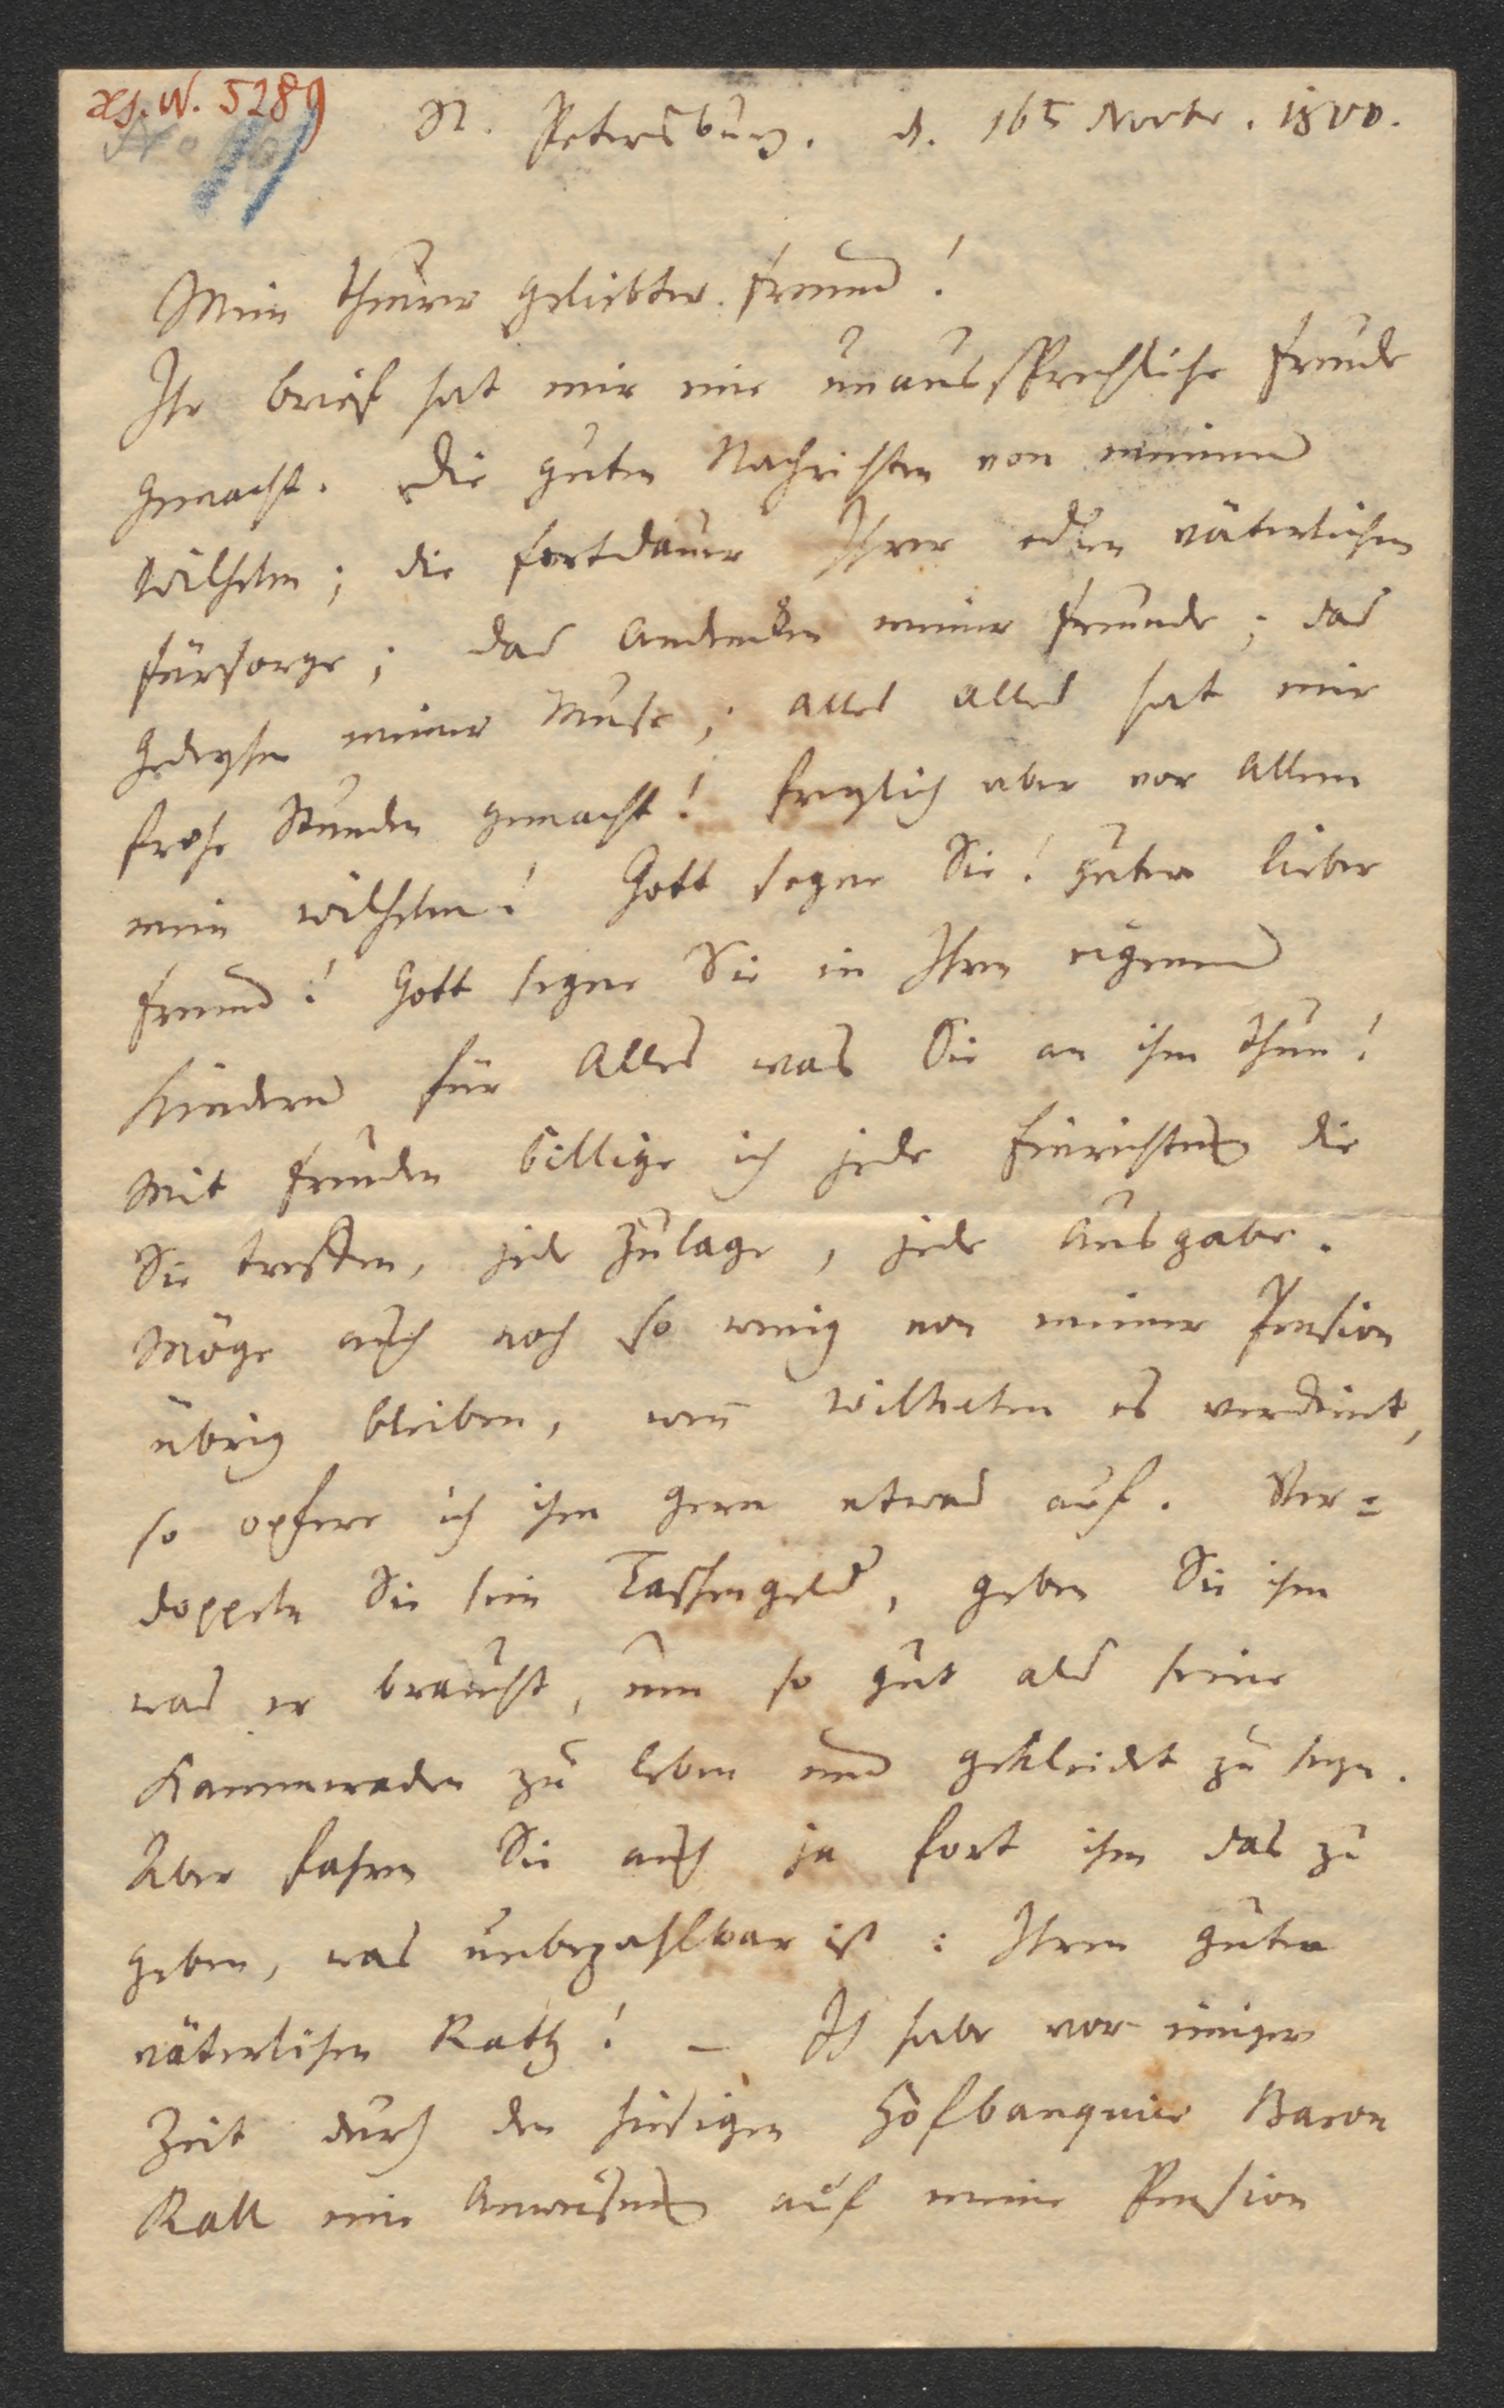 St. Petersburg. d. 16t Novbr. 1800.
Mein theurer geliebter Freund!
Ihr Brief hat mir eine unaussprechliche Freude
gemacht. Die guten Nachrichten von meinem
Wilhelm; die Fortdauer Ihrer edlen väterlichen
Fürsorge; das Andenken meiner Freunde; das
Gedeyhen meiner Muse; alles alles hat mir
frohe Stunden gemacht! Freylich aber vor Allem
mein Wilhelm! Gott segne Sie! guter lieber
Freund! Gott segne Sie in Ihren eigenen
Kindern für Alles was Sie an ihm thun!
Mit Freuden billige ich jede Einrichtung die
Sie treffen, jede Zulage, jede Ausgabe.
Möge auch noch so wenig von meiner Pension
übrig bleiben, wenn Wilhelm es verdient,
so opfere ich ihm gern etwas auf. Ver=
doppeln Sie sein Taschengeld, geben Sie ihm
was er braucht, um so gut als seine
Kammeraden zu leben und gekleidet zu seyn.
Aber fahren Sie auch ja fort ihm das zu
geben, was unbezahlbar ist: Ihren guten
väterlichen Rath! – Ich habe vor einiger
Zeit durch den hiesigen Hofbanquier Baron
Rall eine Anweisung auf meine Pension